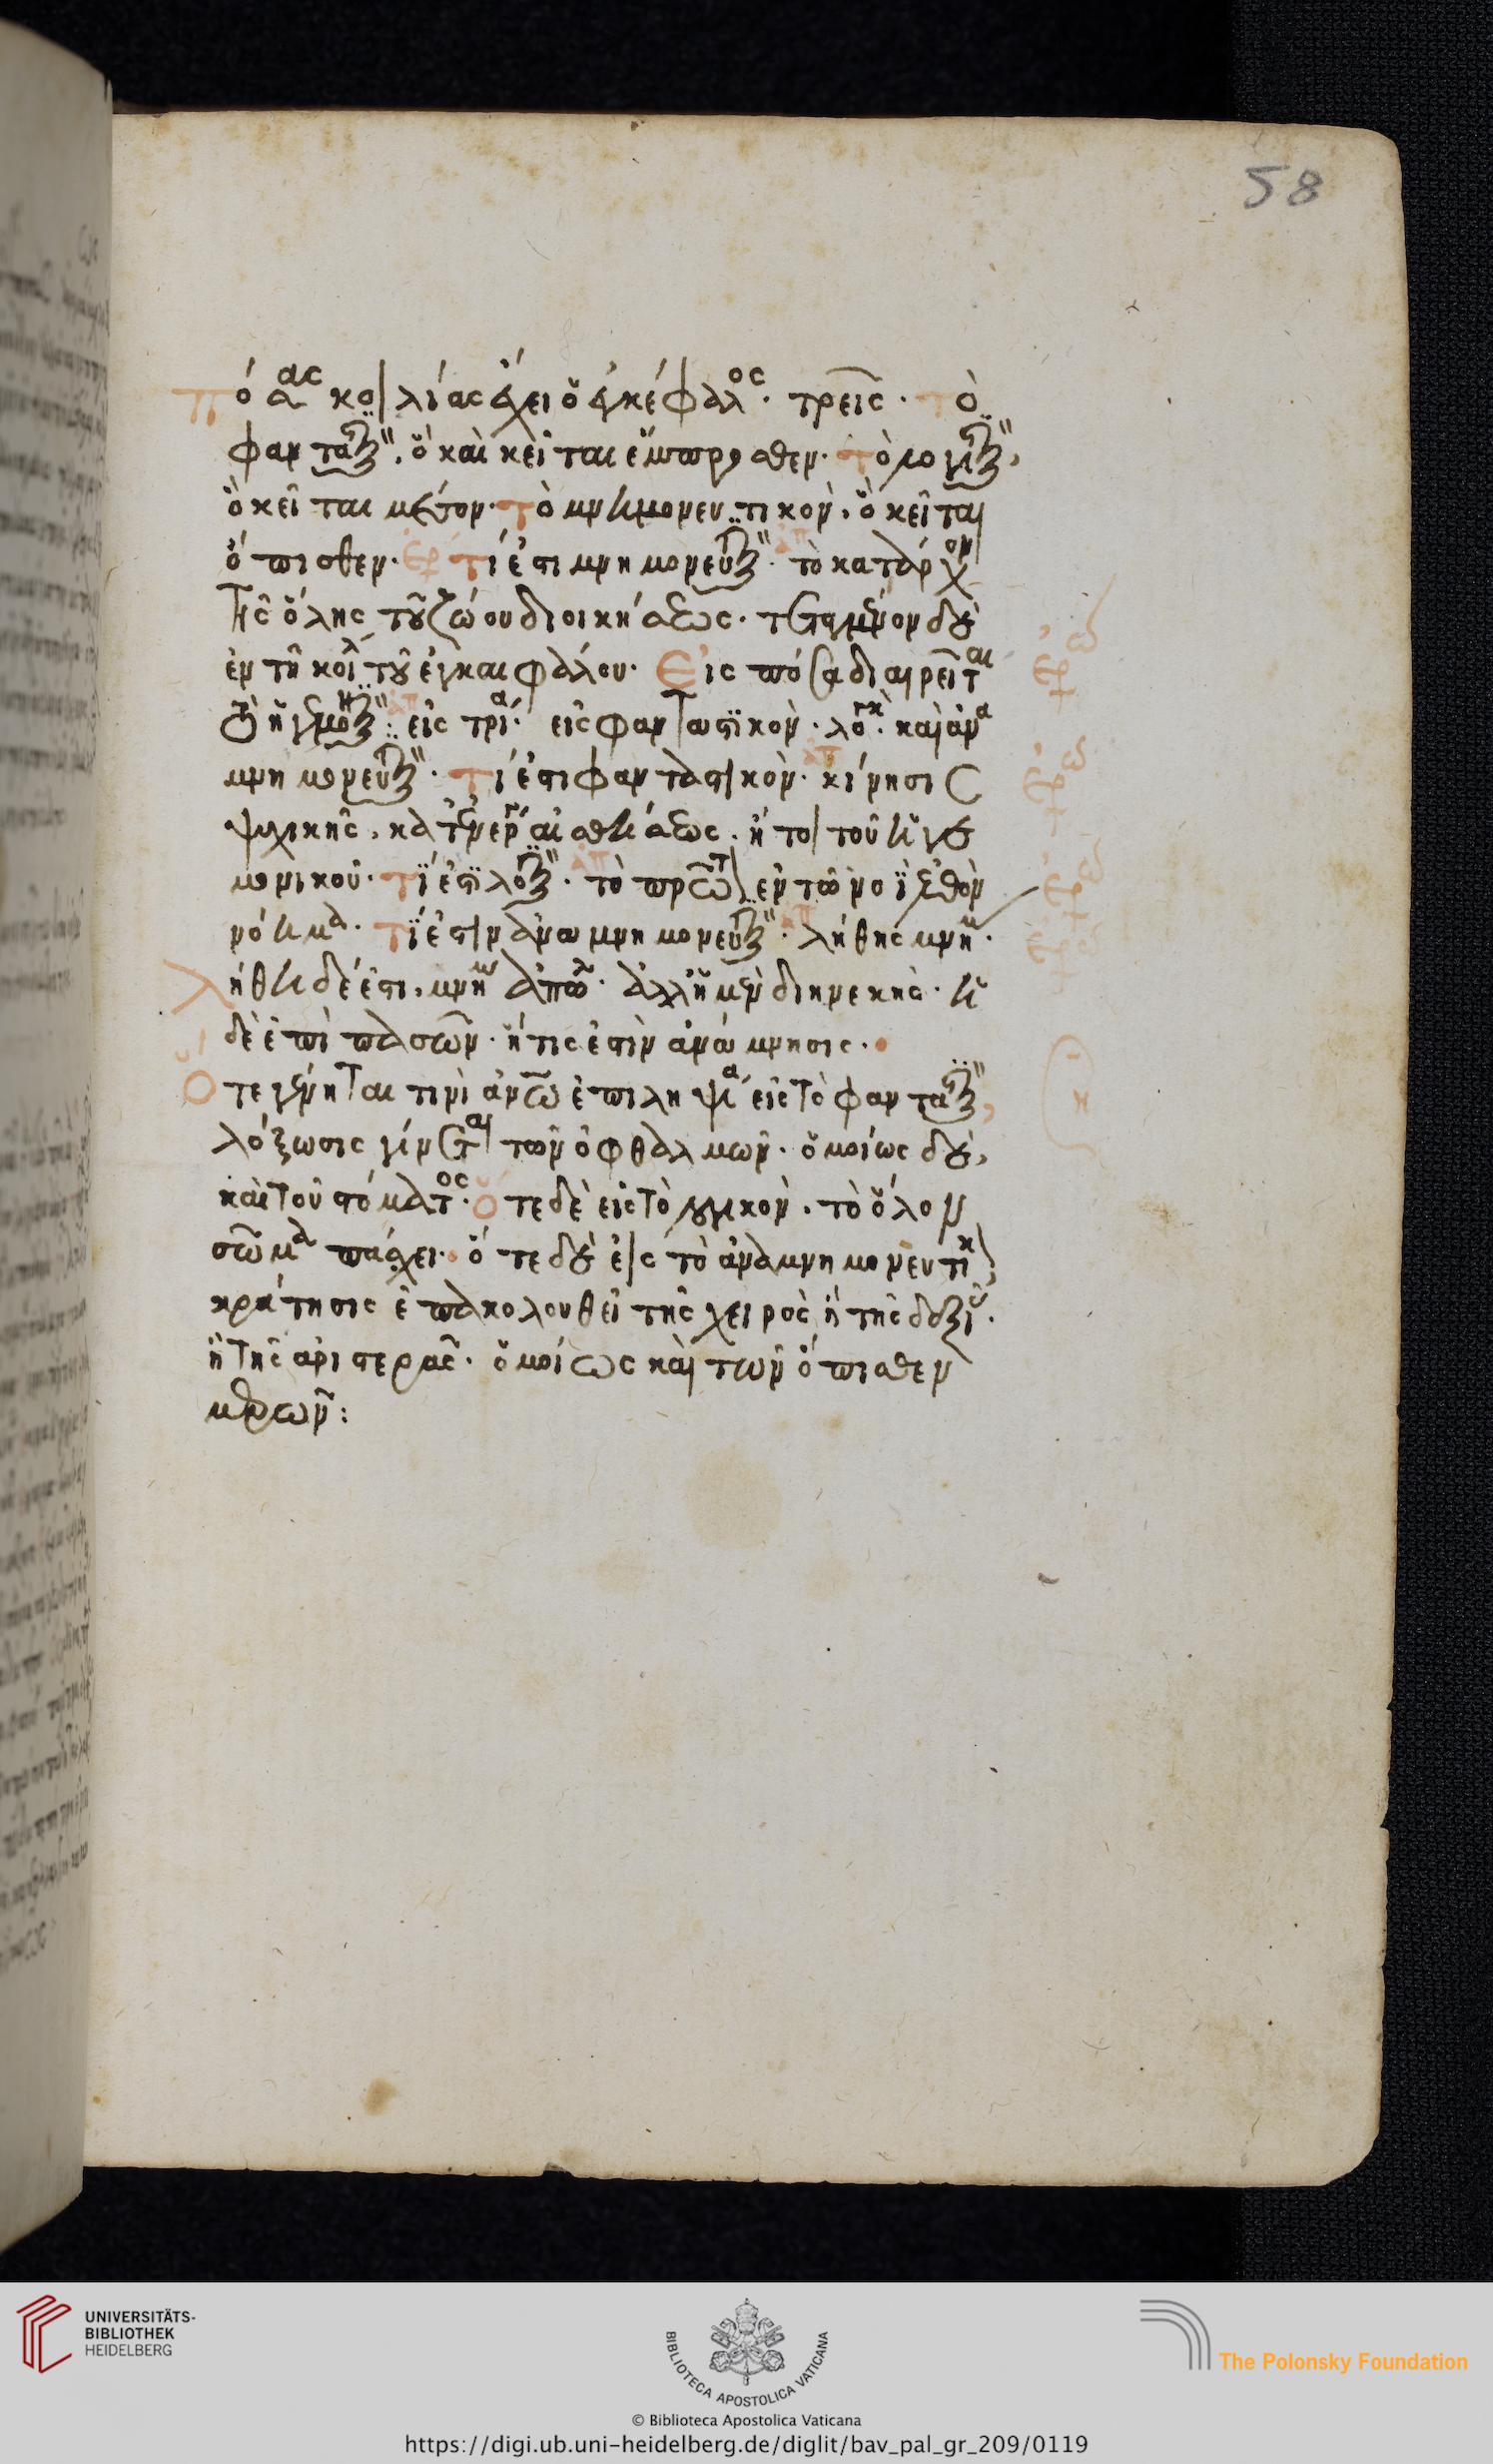 58
πόσας κοιλίας ἔχει ὁ ἐγκέφαλος· τρεῖς· τὸ
φανταστικὸν, ὃ καὶ κεῖται ἔμπροσθεν· τὸ λογιστικὸν,
ὃ κεῖται μέσον· τὸ μνημονευτικὸν, ὃ κεῖται
ὄπισθεν· ἐρ τί ἐστι μνημονευτικόν· τὸ κατάρχον
τῆς ὅλης τοῦ ζώου διοικήσεως· τεταγμένον δὲ
ἐν τῆ κοιλ τοῦ ἐγκαιφάλου· Εἰς πόσα διαιρεῖται
τὸ ἡγεμονικόν: εἰς τρία· εἰς φανταστικὸν· λογικ· καὶ ἀνα
μνημονευτικόν· τί ἐστι φανταστικὸν· κίνησις
ψυχικῆς, κατ' ἐνέργ αἰσθήσεως· ἤτοι τοῦ ἡγε
μονικοῦ· τί ἐστι λογικόν· τὸ πρῶτ ἐν τῶ νοῒ ἐλθὸν
νόημα· τί ἐστιν ἀναμνημονευτικόν· λήθης μνήμ·
λήθη δέ ἐστι, μνήμ ἀπ · ἀλλ' ἡ μὲν διηνεκής· ἡ
δὲ ἐπὶ πασῶν· ἥτις ἐστὶν ἀνάμνησις·
Ὅτε γένηται τινὶ ἀνῶ ἐπιληψία εἰς τὸ φανταστικὸν,
λόξωσις γίνεται τῶν ὀφθαλμῶν· ὁμοίως δὲ,
καὶ τοῦ στόματος· ὅτε δὲ εἰς τὸ λογικὸν· τὸ ὅλον
σῶμα πάσχει· ὅτε δὲ εἰς τὸ ἀναμνημονευτικ
κράτησις ἐπακολουθεῖ τῆς χειρὸς ἢ τῆς δεξι·
ἢ τῆς ἀριστερᾶς· ὁμοίως καὶ τῶν ὄπισθεν
μερῶν:
UNIVERSITÄTS-
BIBLIOTHEK
HEIDELBERG
BIBLIOTECA APOSTOLICA VATICANA
The Polonsky Foundation
© Biblioteca Apostolica Vaticana
https://digi.ub.uni-heidelberg.de/diglit/bav_pal_gr_209/0119